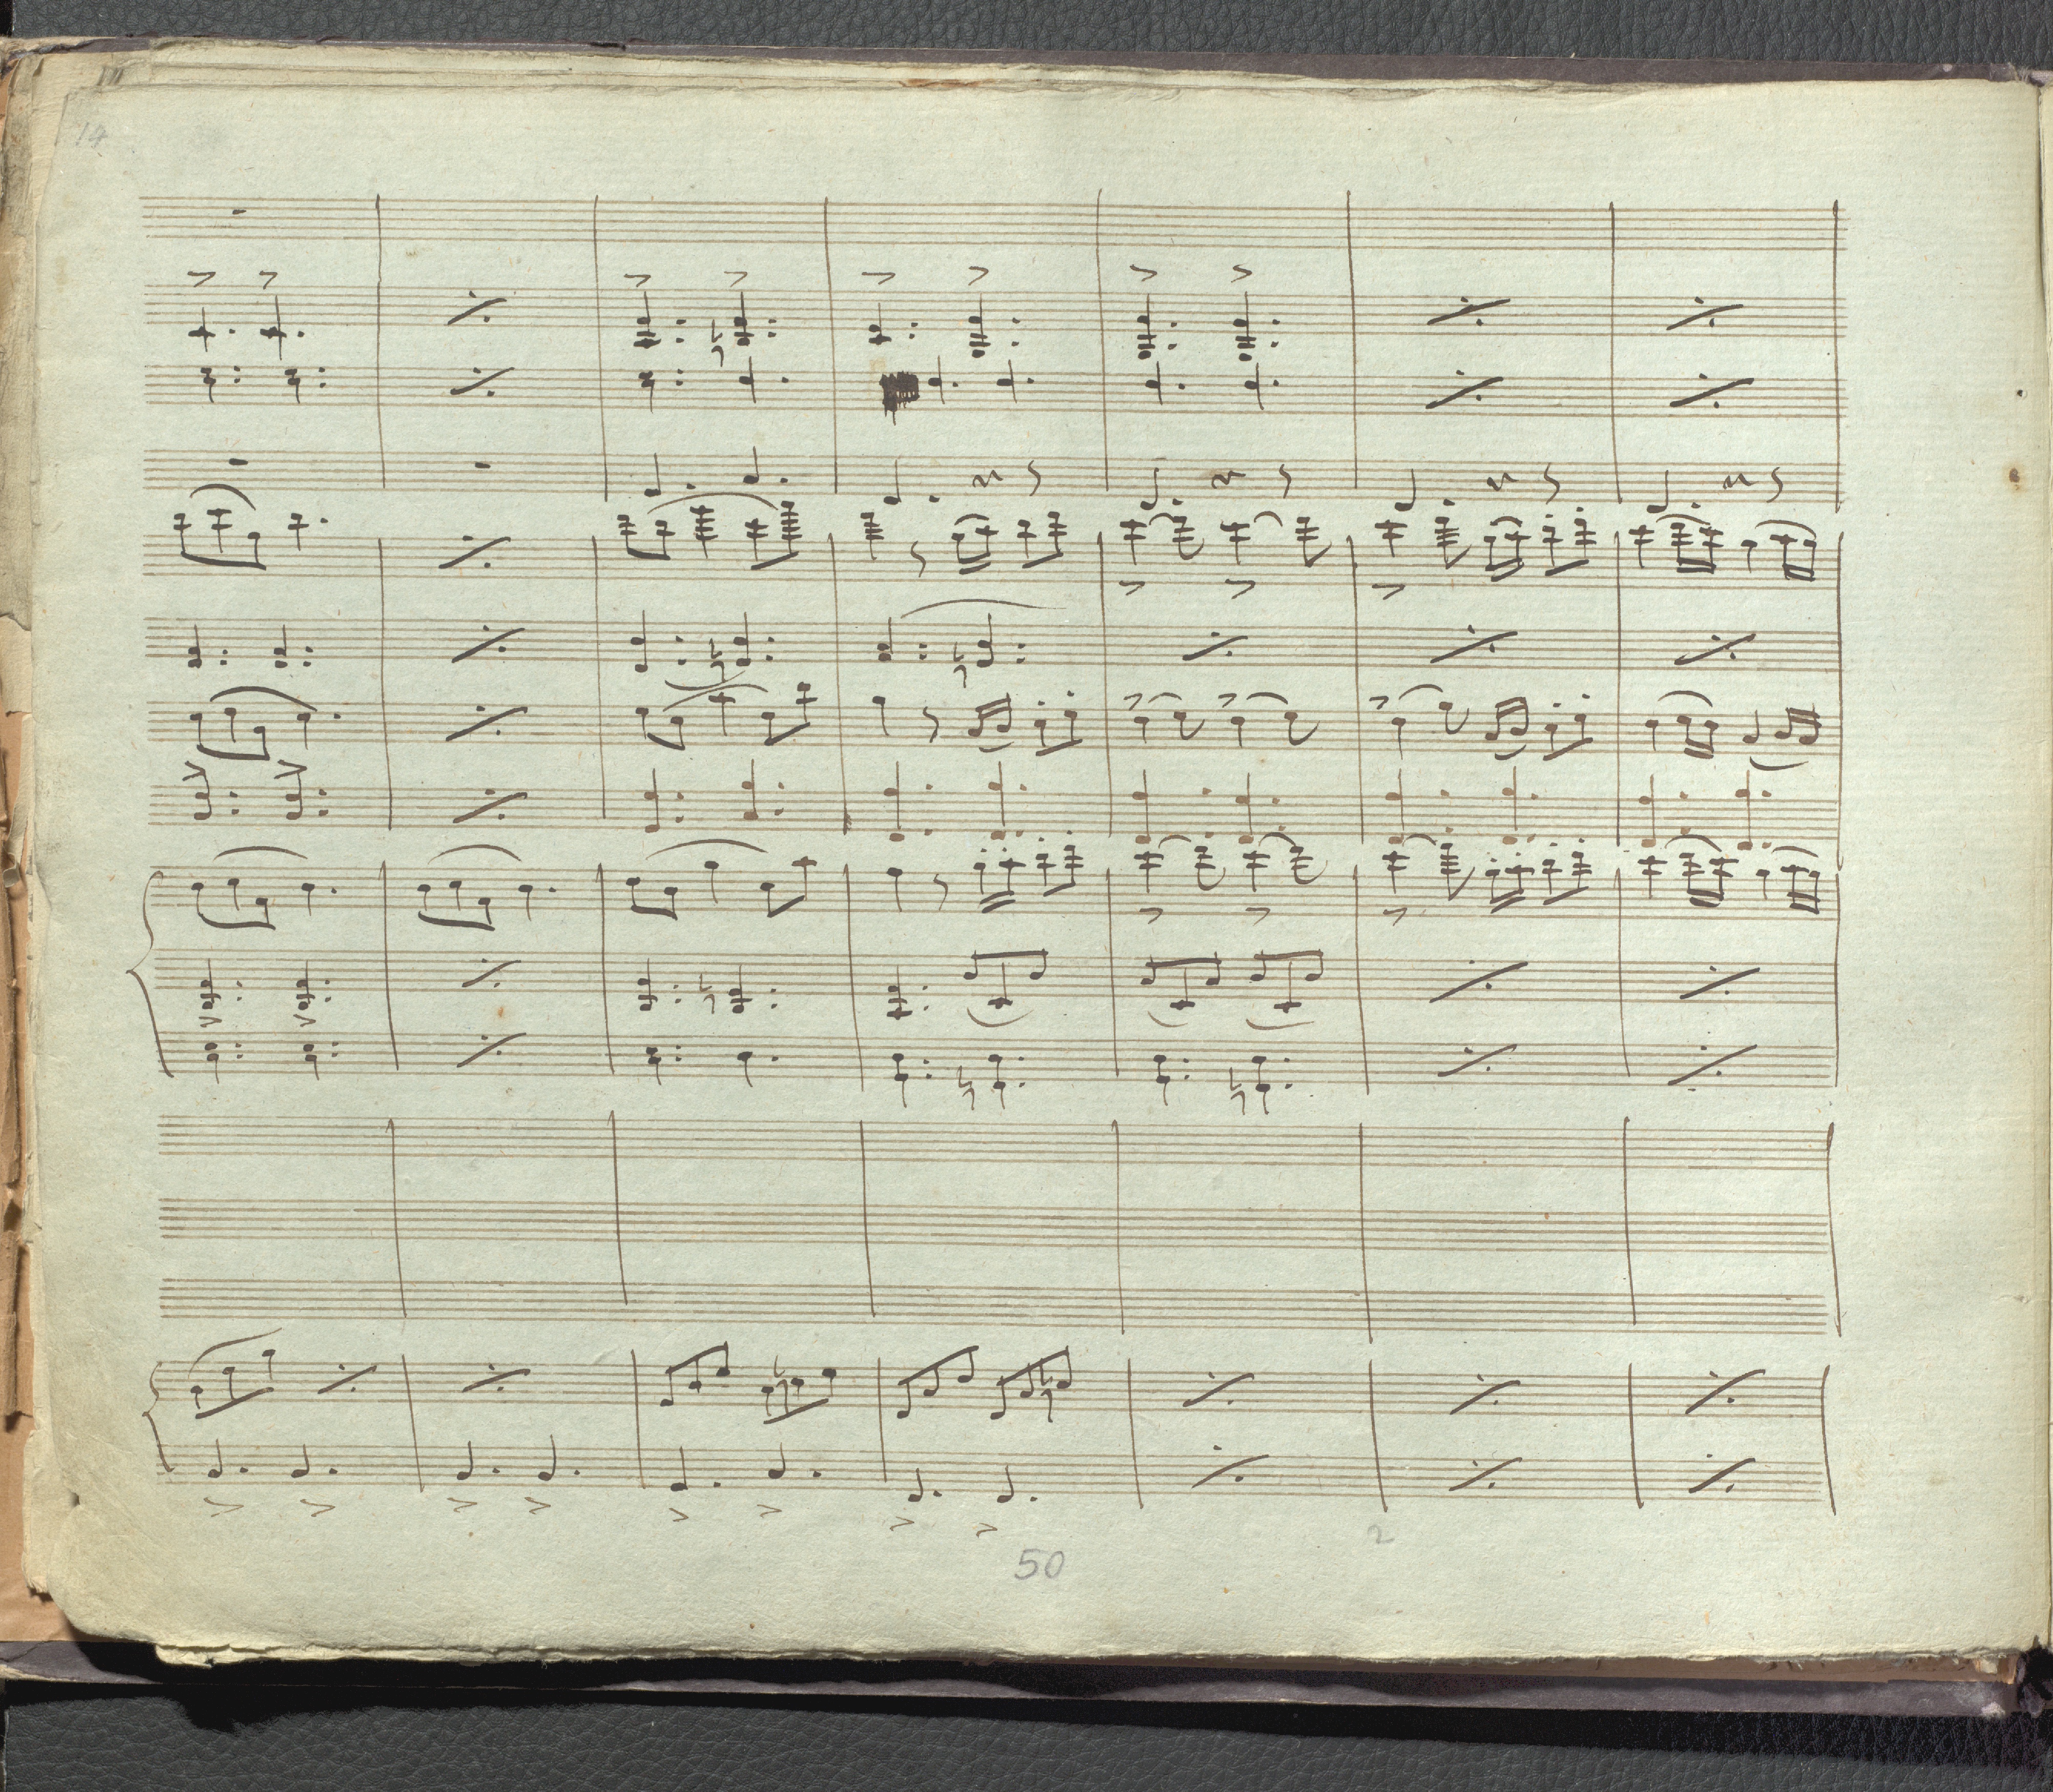 14
2
50